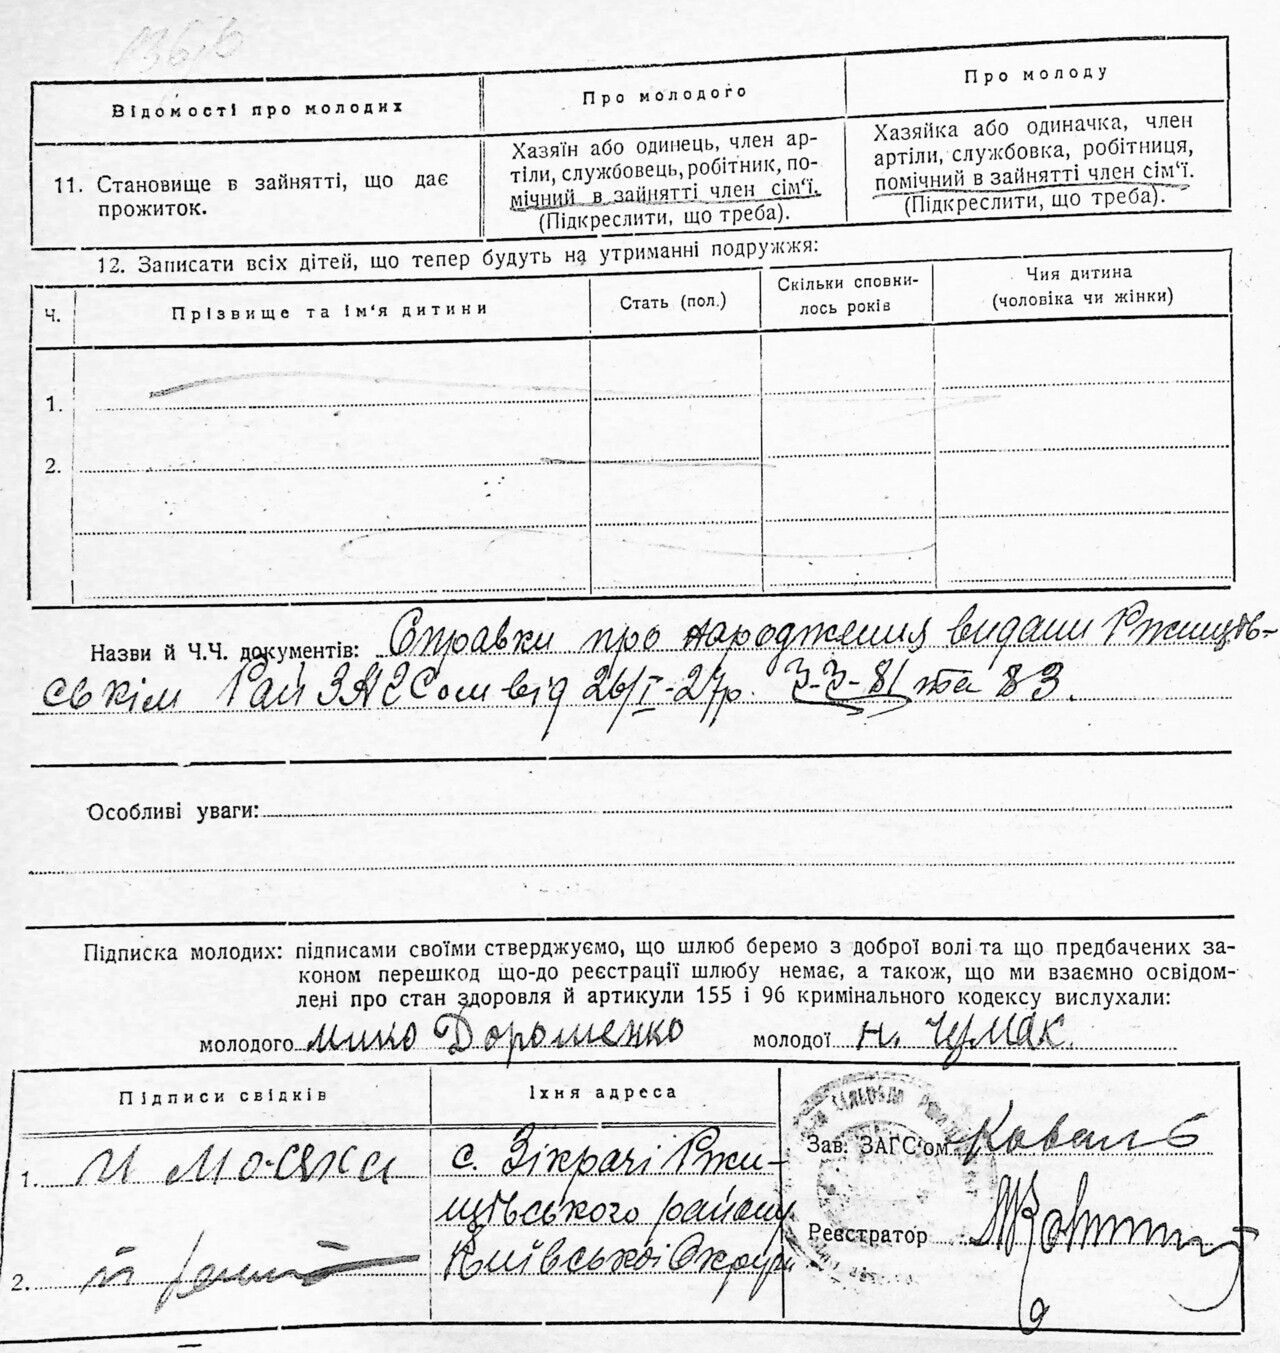 Відомості про молодих
Про молодого
Про молоду
11. Становище в зайнятті, що дає
прожиток.
Хазяїн або одинець, член ар-
тіли, службовець, робітник, по-
мічний в зайнятті член сім'ї.
(Підкреслити, що треба).
Хазяйка або одиначка, член
артіли, службовка, робітниця,
помічний в зайнятті член сім'ї.
(Підкреслити, що треба).
12. Записати всіх дітей, що тепер будуть на утриманні подружжя:
Ч.
Прізвище та ім'я дитини
Стать (пол.)
Скільки сповни-
лось років
Чия дитина
(чоловіка чи жінки)
1.
2.
Назви й Ч.Ч. документів: Справки про народження видани Ржищів-
ськім Рай ЗАГСом від 26/I-27р. 3-3-81 та 83.
Особливі уваги:
Підписка молодих: підписами своїми стверджуємо, що шлюб беремо з доброї волі та що предбачених за-
коном перешкод що-до реєстрації шлюбу немає, а також, що ми взаємно освідом-
лені про стан здоровля й артикули 155 і 96 кримінального кодексу вислухали:
молодого Дорошенко молодої Н. Чумак.
Підписи свідків
Їхня адреса
1.
2.
с. Зікрачі Ржи-
щівського району
Київської Округи
Зав. ЗАГС'ом Коваль
Реєстратор